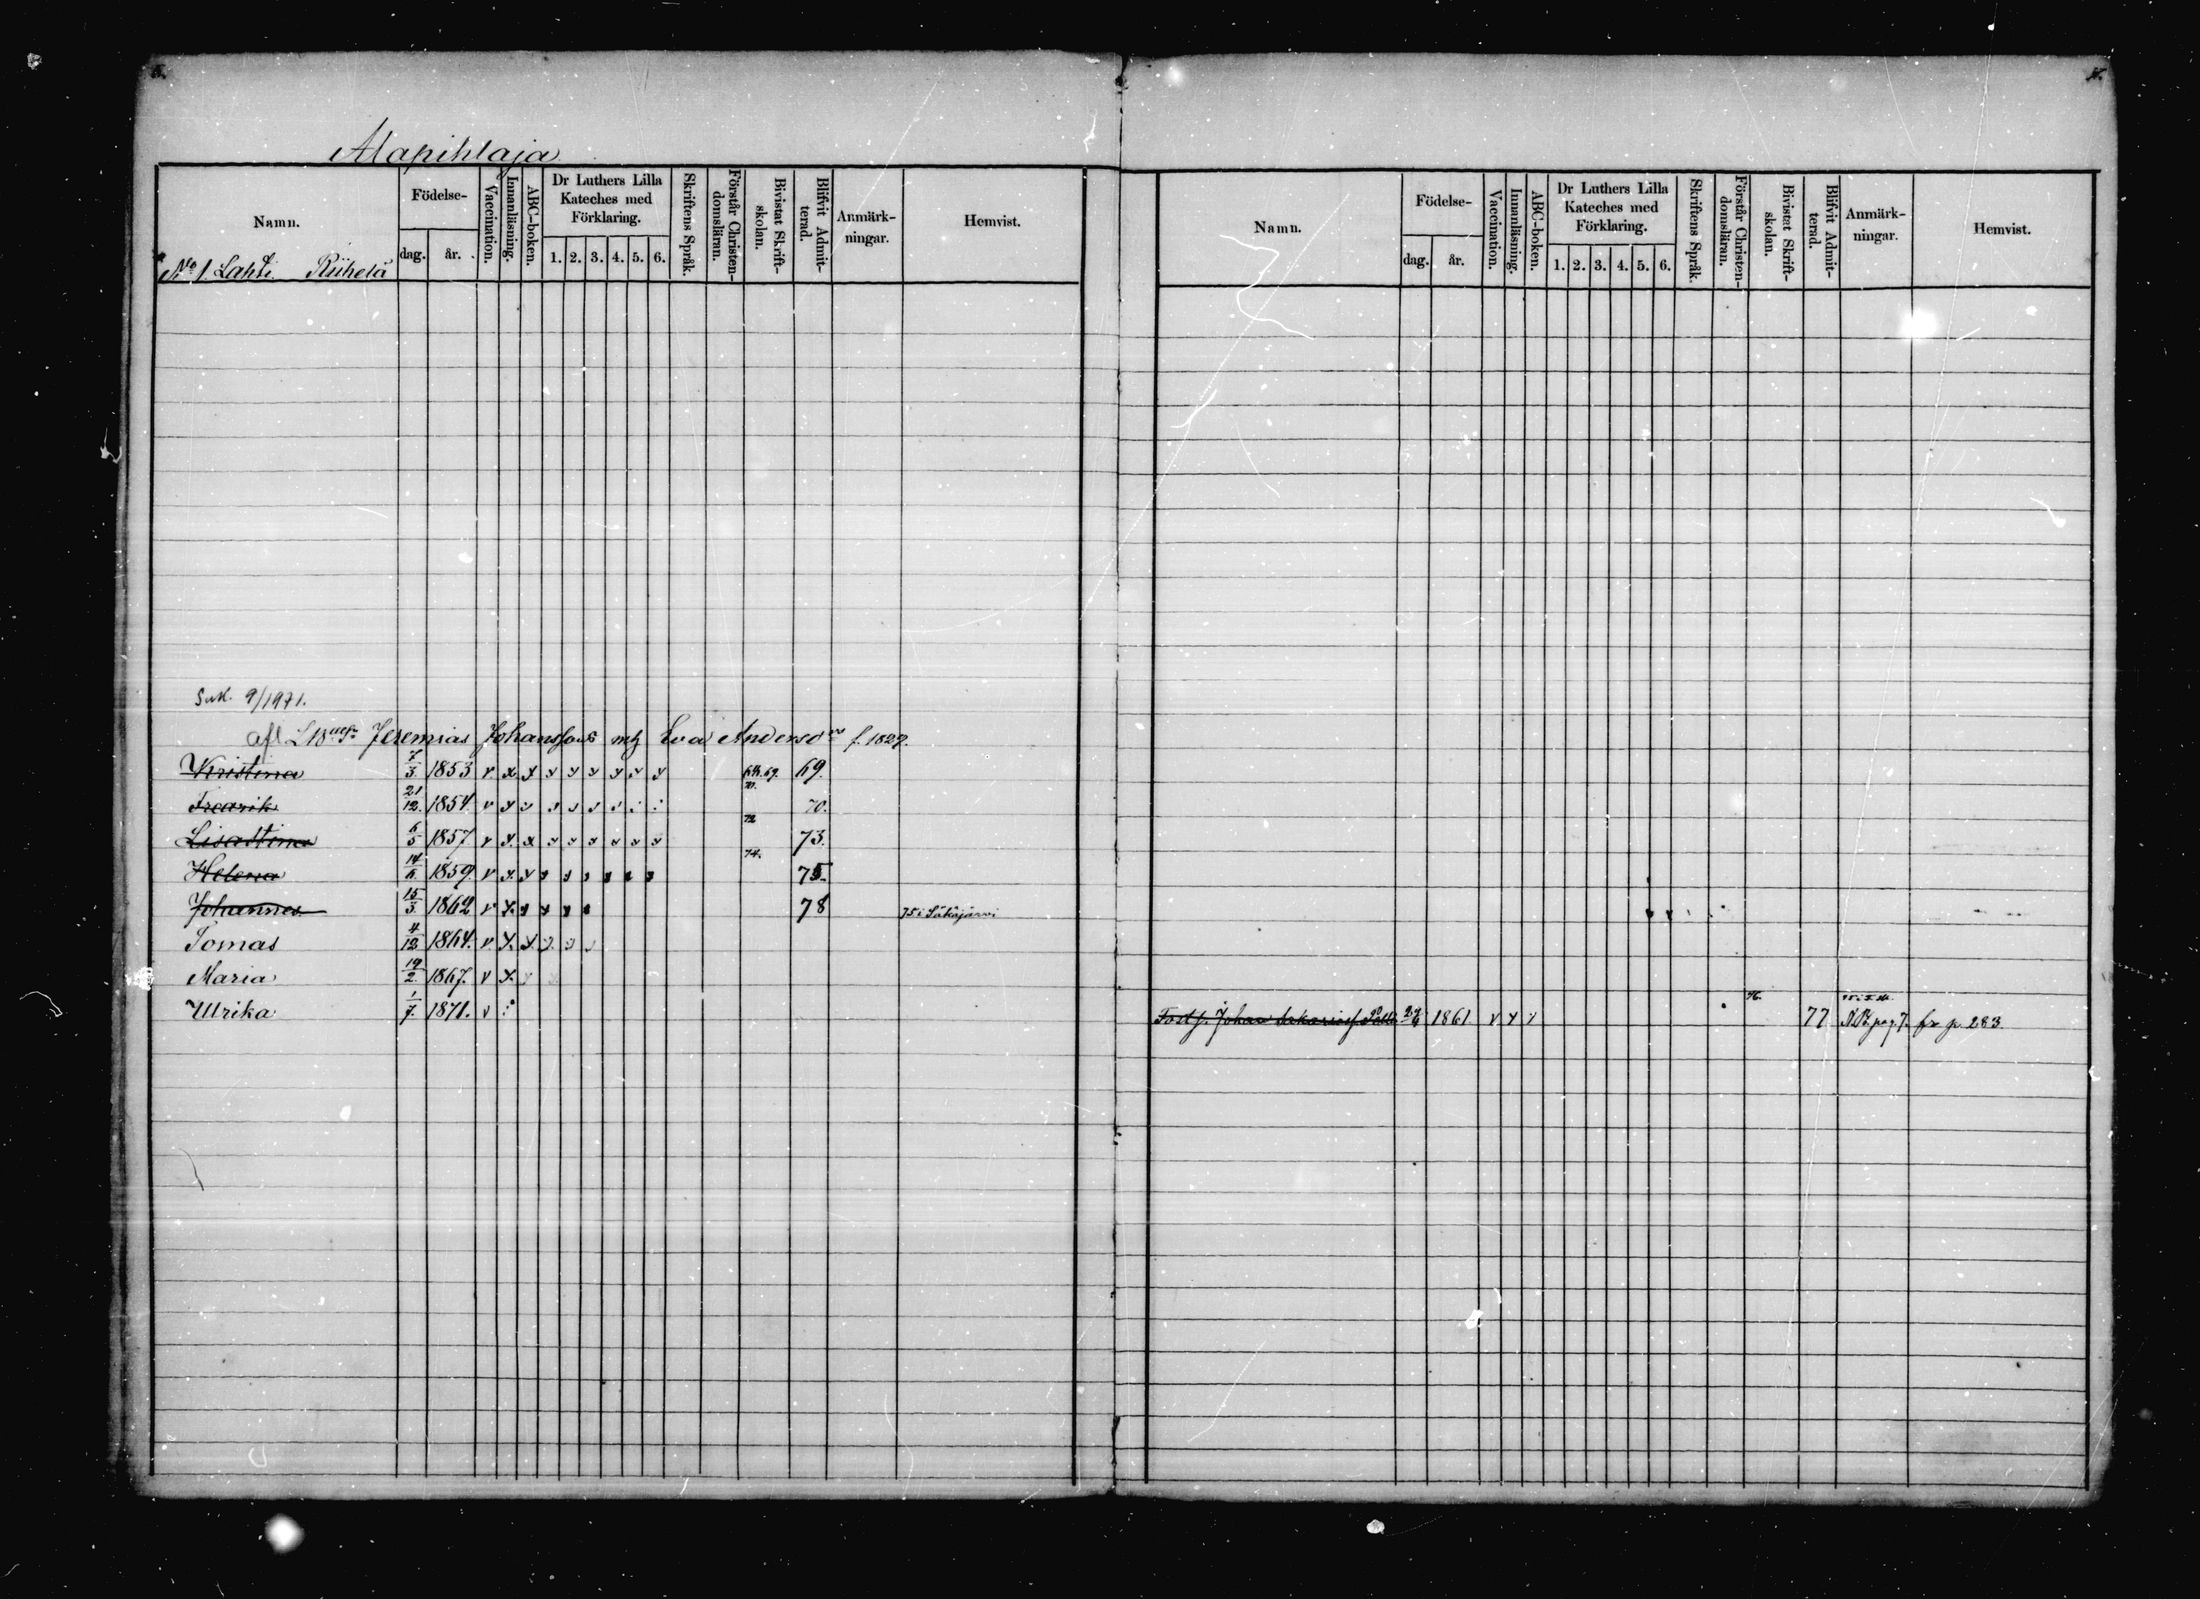 Alapihlaja
Namn.
Födelse-
dag. år.
Vaccination.
Innanläsning.
ABC-boken.
Dr Luthers Lilla Kateches med Förklaring.
1. 2. 3. 4. 5. 6.
Skriftens Språk.
Förstår Christendomsläran.
Bivistat Skriftskolan.
Blifvit Admitterad.
Anmärkningar.
Hemvist.
No 1. Lahti Riihelä
Suk. 9/1971.
Jeremias Johansson mh Eva Anderso f. 1827.
Kristina 7/3 1853 69. 69.
Fredrik 21/12 1854. 70. 70.
Lisastina 6/5 1857 72 73.
Helena 14/6 1859. 74. 75.
Johannes 15/3 1862 78 75 i Säkäjärvi
Tomas 4/12 1864.
Maria 19/2 1867.
Ulrika 1/7 1871.
Namn.
Födelse-
dag. år.
Vaccination.
Innanläsning.
ABC-boken.
Dr Luthers Lilla Kateches med Förklaring.
1. 2. 3. 4. 5. 6.
Skriftens Språk.
Förstår Christendomsläran.
Bivistat Skriftskolan.
Blifvit Admitterad.
Anmärkningar.
Hemvist.
Johan Sakariass 1861 76. 77 pag 7. fr p. 283.